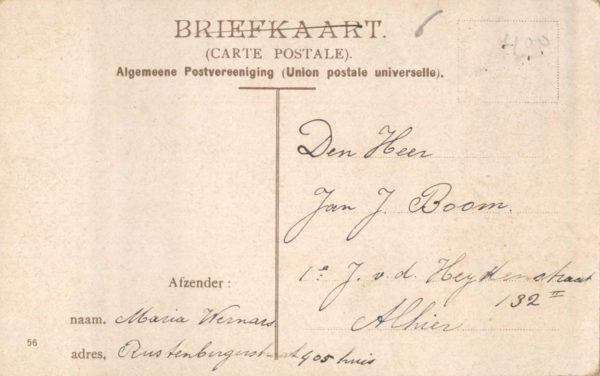 BRIEFKAART.
(CARTE POSTALE).
Algemeene Postvereeniging (Union postale universelle).
6
Den Heer
Jan J. Boom.
1e J. v. d. Heydenstraat
132 II
Alhier
Afzender:
naam. Maria Wernars
adres, Rustenburgerstraat 405 huis
56